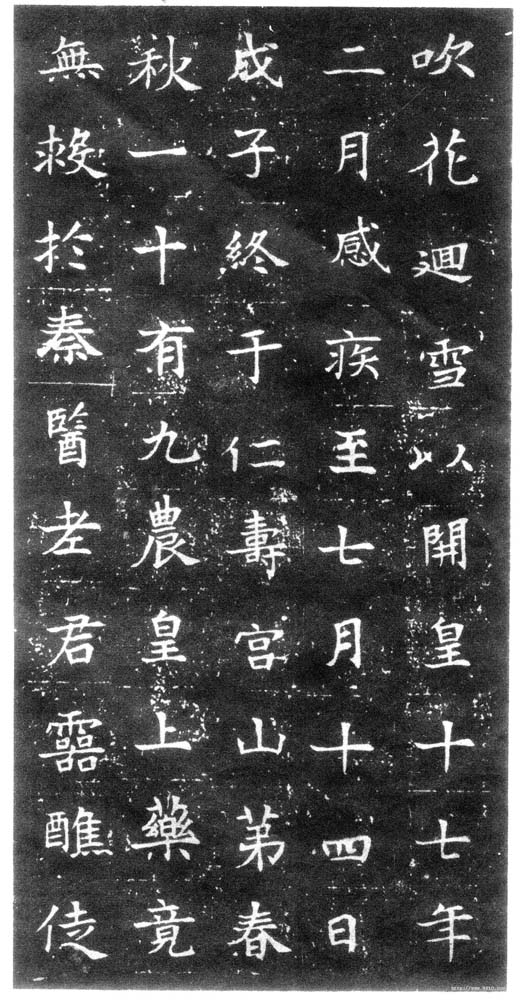 吹花迴雪以開皇十七年
二月感疾至七月十四日
戊子終于仁壽宫山苐春
秋一十有九農皇上藥竟
無救扵秦醫老君靈醮徒